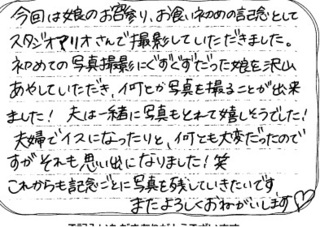 今回は娘のお宮参り、お食い初めの記念として
スタジオマリオさんで撮影していただきました。
初めての写真撮影にぐずぐずだった娘を沢山
あやしていただき、何とか写真を撮ることが出来
ました！ 夫は一緒に写真もとれて嬉しそうでした！
夫婦でイスになったりと、何とも大変だったので
すがそれも思い出になりました！笑
これからも記念ごとに写真を残していきたいです
またよろしくおねがいします♡